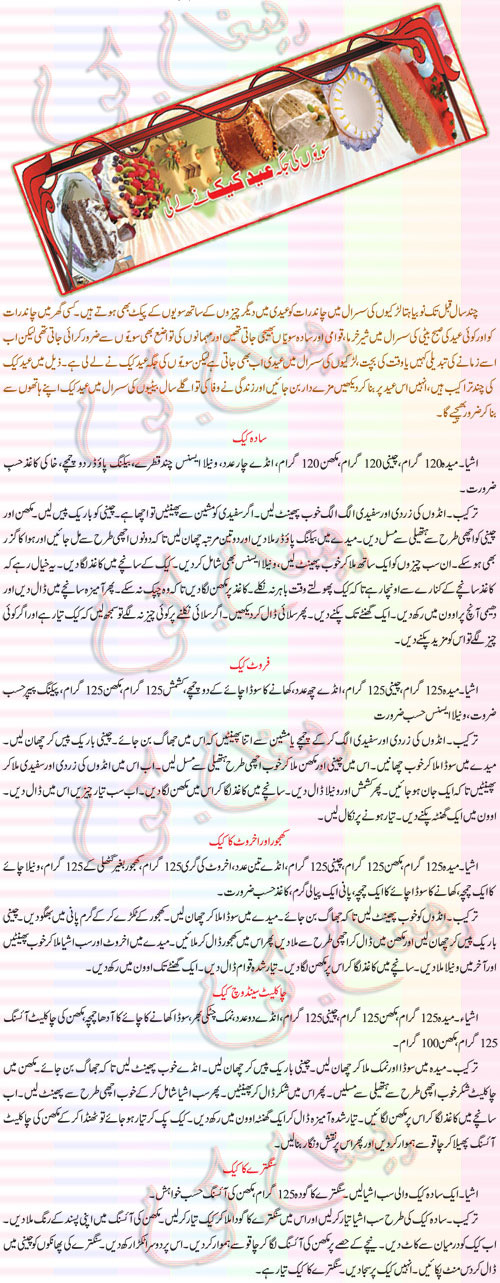 سویوں کی جگہ عید کیک نے لے لی
چند سال قبل تک نوبیاہتا لڑکیوں کی سسرال میں چاند رات کو عیدی میں دیگر چیزوں کے ساتھ سویوں کے پیکٹ بھی ہوتے ہیں۔ کسی گھر میں چاند رات
کو اور کوئی عید کی صبح بیٹی کی سسرال میں شیر خرما، قوامی اور سادہ سویاں بھیجی جاتی تھیں اور مہمانوں کی تواضع بھی سویوں سے ضرور کرائی جاتی تھی لیکن اب
اسے زمانے کی تبدیلی کہیں یا وقت کی بچت، لڑکیوں کی سسرال میں عیدی اب بھی جاتی ہے لیکن سویوں کی جگہ عید کیک نے لے لی ہے۔ ذیل میں عید کیک
کی چند تراکیب ہیں، انہیں اس عید پر بنا کر دیکھیں مزے دار بن جائیں اور زندگی نے وفا کی تو اگلے سال بیٹیوں کی سسرال میں عید کیک اپنے ہاتھوں سے
بنا کر ضرور بھیجیے گا۔
سادہ کیک
اشیا۔ میدہ 120 گرام، چینی 120 گرام، مکھن 120 گرام، انڈے چار عدد، ونیلا ایسنس چند قطرے، بیکنگ پاؤڈر دو چمچے، خاکی کاغذ حسب
ضرورت۔
ترکیب۔ انڈوں کی زردی اور سفیدی الگ الگ خوب پھینٹ لیں۔ اگر سفیدی کو مشین سے پھینٹیں تو اچھا ہے۔ چینی کو باریک پیس لیں۔ مکھن اور
چینی کو اچھی طرح سے ہتھیلی سے مسل دیں۔ میدے میں بیکنگ پاؤڈر ملا دیں اور دو تین مرتبہ چھان لیں تاکہ دونوں اچھی طرح سے مل جائیں اور ہوا کا گزر
بھی ہو سکے۔ ان سب چیزوں کو ایک ساتھ ملا کر خوب پھینٹ لیں، ونیلا ایسنس بھی شامل کر دیں۔ کیک کے سانچے میں کاغذ لگا دیں۔ یہ خیال رہے کہ
کاغذ سانچے کے کنارے سے اونچا رہے تاکہ کیک پھولتے وقت باہر نہ نکلے۔ کاغذ پر مکھن لگا دیں تاکہ وہ چپک نہ سکے۔ پھر آمیزہ سانچے میں ڈال دیں اور
دھیمی آنچ پر اوون میں رکھ دیں۔ ایک گھنٹے تک پکنے دیں۔ پھر سلائی ڈال کر دیکھیں۔ اگر سلائی نکلنے پر کوئی چیز نہ لگے تو سمجھ لیں کہ کیک تیار ہے اور اگر کوئی
چیز لگے تو اس کو مزید پکنے دیں۔
فروٹ کیک
اشیا۔ میدہ 125 گرام، چینی 125 گرام، انڈے چھ عدد، کھانے کا سوڈا چائے کے دو چمچے، کشمش 125 گرام، مکھن 125 گرام، پیکنگ پیپر حسب
ضرورت، ونیلا ایسنس حسب ضرورت
ترکیب۔ انڈوں کی زردی اور سفیدی الگ کر کے چمچے یا مشین سے اتنا پھینٹیں کہ اس میں جھاگ بن جائے۔ چینی باریک پیس کر چھان لیں۔
میدے میں سوڈا ملا کر خوب چھانیں۔ اس میں چینی اور مکھن ملا کر خوب اچھی طرح ہتھیلی سے مسل لیں۔ اب اس میں انڈوں کی زردی اور سفیدی ملا کر
پھینٹیں تاکہ ایک جان ہو جائیں۔ پھر کشمش اور ونیلا ڈال دیں۔ سانچے میں کاغذ لگا کر اس میں مکھن لگا دیں۔ اب سب تیار چیزیں اس میں ڈال دیں۔
اوون میں ایک گھنٹہ پکنے دیں۔ تیار ہونے پر نکال لیں۔
کھجور اور اخروٹ کا کیک
اشیا۔ میدہ 125 گرام، مکھن 125 گرام، چینی 125 گرام، انڈے تین عدد، اخروٹ کی گری 125 گرام، کھجور بغیر گٹھلی کے 125 گرام، ونیلا چائے
کا ایک چمچہ، کھانے کا سوڈا چائے کا ایک چمچہ، پانی ایک پیالی گرم، کاغذ حسب ضرورت۔
ترکیب۔ انڈوں کو خوب پھینٹ لیں تاکہ جھاگ بن جائے۔ میدے میں سوڈا ملا کر چھان لیں۔ کھجور کے ٹکڑے کر کے گرم پانی میں بھگو دیں۔ چینی
باریک پیس کر چھان لیں اور مکھن میں ڈال کر اچھی طرح سے ملا دیں پھر اس میں کھجور ڈال کر ملائیں۔ میدے میں اخروٹ اور سب اشیا ملا کر خوب پھینٹیں
اور آخر میں ونیلا ملا دیں۔ سانچے میں کاغذ لگا کر اس پر مکھن لگا دیں۔ تیار شدہ قوام ڈال دیں۔ ایک گھنٹے تک اوون میں رکھ دیں۔
چاکلیٹ سینڈوچ کیک
اشیاء۔ میدہ 125 گرام، مکھن 125 گرام، چینی 125 گرام، انڈے دو عدد، نمک چٹکی بھر، سوڈا کھانے کا چائے کا آدھا چمچہ، مکھن کی چاکلیٹ آئسنگ
125 گرام، مکھن 100 گرام۔
ترکیب۔ میدہ میں سوڈا اور نمک ملا کر چھان لیں۔ چینی باریک پیس کر چھان لیں۔ انڈے خوب پھینٹ لیں تاکہ جھاگ بن جائے۔ مکھن میں
چاکلیٹ شکر خوب اچھی طرح سے ہتھیلی سے مسلیں۔ پھر اس میں شکر ڈال کر پھینٹیں۔ پھر سب اشیا شامل کر کے خوب اچھی طرح سے پھینٹ لیں۔ اب
سانچے میں کاغذ لگا کر اس پر مکھن لگائیں۔ تیار شدہ آمیزہ ڈال کر ایک گھنٹہ اوون میں رکھ دیں۔ کیک پک کر تیار ہو جائے تو ٹھنڈا کر کے مکھن کی چاکلیٹ
آئسنگ پھیلا کر چاقو سے ہموار کر دیں اور پھر اس پر نقش و نگار بنا لیں۔
سنگترے کا کیک
اشیا۔ ایک سادہ کیک والی سب اشیا لیں۔ سنگترے کا گودہ 125 گرام، مکھن کی آئسنگ حسب خواہش۔
ترکیب۔ سادہ کیک کی طرح سب اشیا تیار کر لیں اور اس میں سنگترے کا گودا ملا کر کیک تیار کر لیں۔ مکھن کی آئسنگ میں اپنی پسند کے رنگ ملا دیں۔
اب کیک کو درمیان سے کاٹ دیں۔ نیچے کے حصے پر مکھن کی آئسنگ لگا کر چاقو سے ہموار کر دیں۔ اس پر دوسرا ٹکڑا رکھ دیں۔ سنگترے کی پھانکوں کو چینی میں
ڈال کر دس منٹ پکائیں، انہیں کیک پر سجا دیں۔ سنگترے کا کیک تیار ہے۔